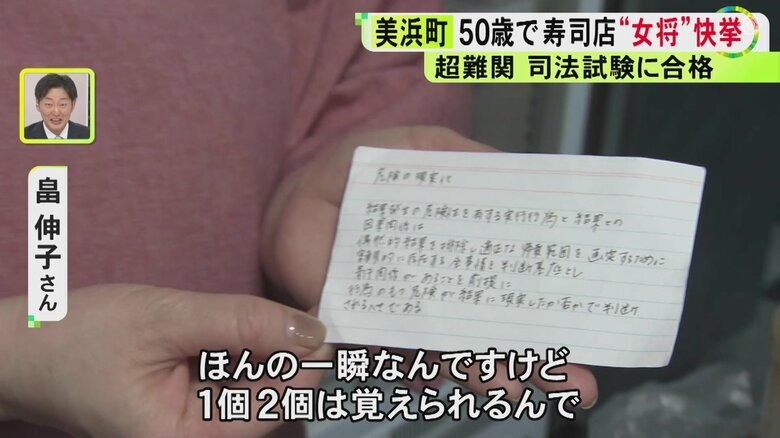 美浜町 50歳で寿司店“女将”快挙
超難関 司法試験に合格
畠 伸子さん
危険の現実化
結果発生の危険性を有する実行行為と結果との
因果関係は
偶然的結果を排除し適正な帰責範囲を画定するために
客観的に存在する全事情を判断基底とし
条件関係があることを前提に
行為のもつ危険が結果に現実化したか否かで判断
されるべきである
ほんの一瞬なんですけど
1個2個は覚えられるんで